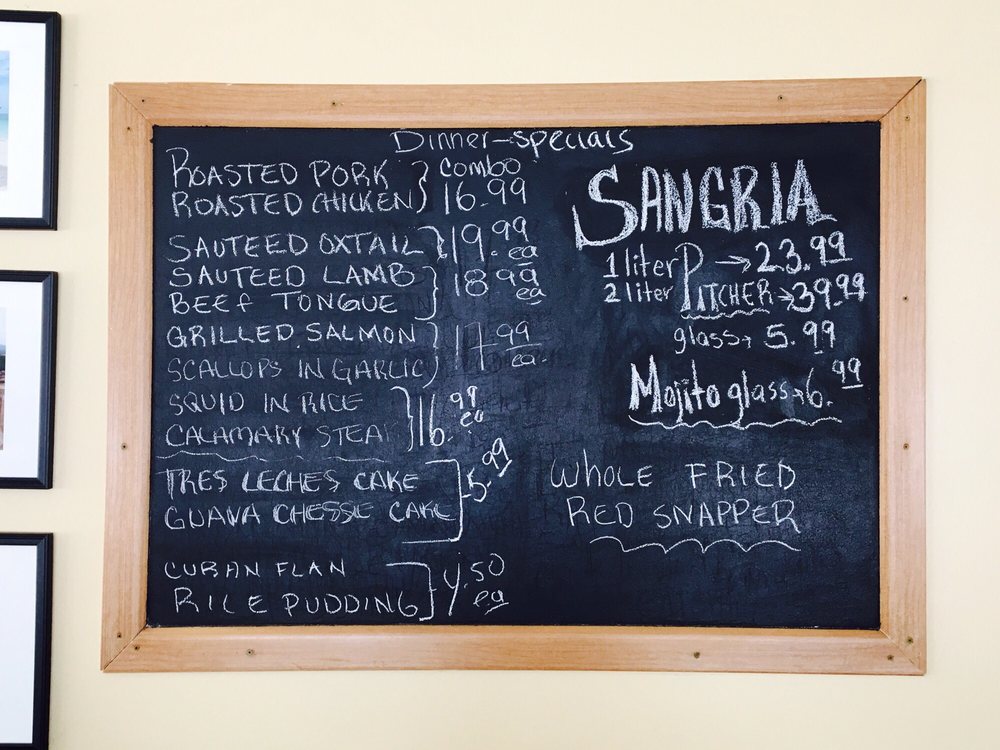 Dinner-specials
ROASTED PORK
ROASTED CHICKEN } Combo 16.99
SAUTEED OXTAIL } 19.99 ea
SAUTEED LAMB
BEEF TONGUE } 18.99 ea
GRILLED SALMON
SCALLOPS IN GARLIC } 17.99 ea.
SQUID IN RICE
CALAMARY STEA } 16.99 ea
TRES LECHES CAKE
GUAVA CHESSE CAKE } 5.99
CUBAN FLAN
RICE PUDDING } 4.50 ea
SANGRIA
1 liter → 23.99
2 liter PITCHER → 39.99
glass → 5.99
Mojito glass → 6.99
WHOLE FRIED
RED SNAPPER